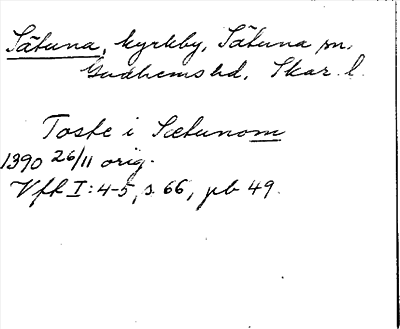 Sätuna, kyrkby, Sätuna sn.
Gudhems hd. Skar. l.
Toste i Sætunom
1390 26/11 orig.
Vfk I:4-5, s 66, pb 49.